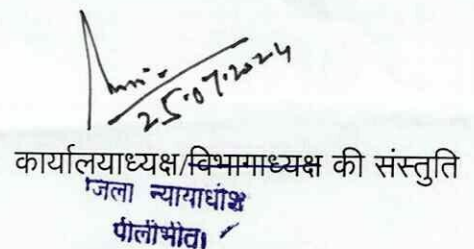 25.07.2024
कार्यालयाध्यक्ष/विभागाध्यक्ष की संस्तुति
जिला न्यायाधीश
पीलीभीत।